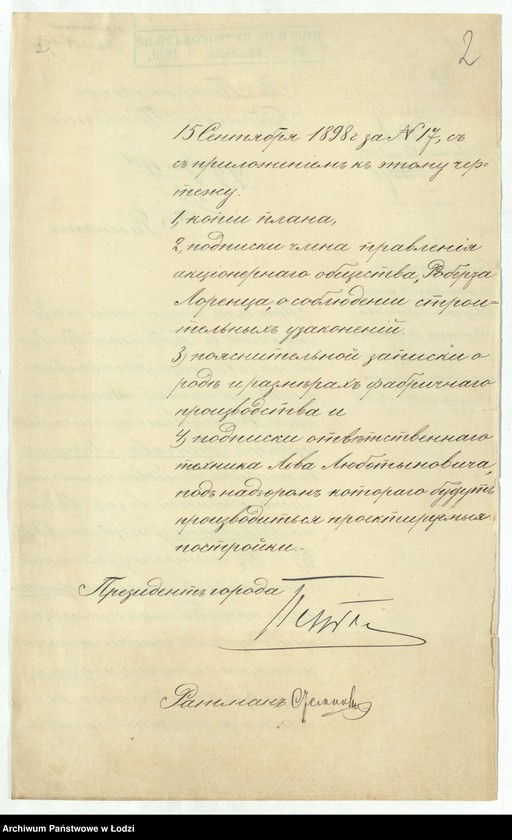 2
15 Сентября 1898 г за № 17, съ
съ приложеніемъ къ этому чер=
тежу.
1, копіи плана,
2, подписки члена правленія
акціонернаго общества,
Лоренца, о соблюденіи строи=
тельныхъ узаконеній.
3, пояснительной записки о
родѣ и размѣрахъ фабричнаго
производства и
4, подписки отвѣтственнаго
техника Льва Люботыновича,
подъ надзоромъ котораго будутъ
производиться проэктируемыя
постройки.
Президентъ города
Ратманъ
Archiwum Państwowe w Łodzi